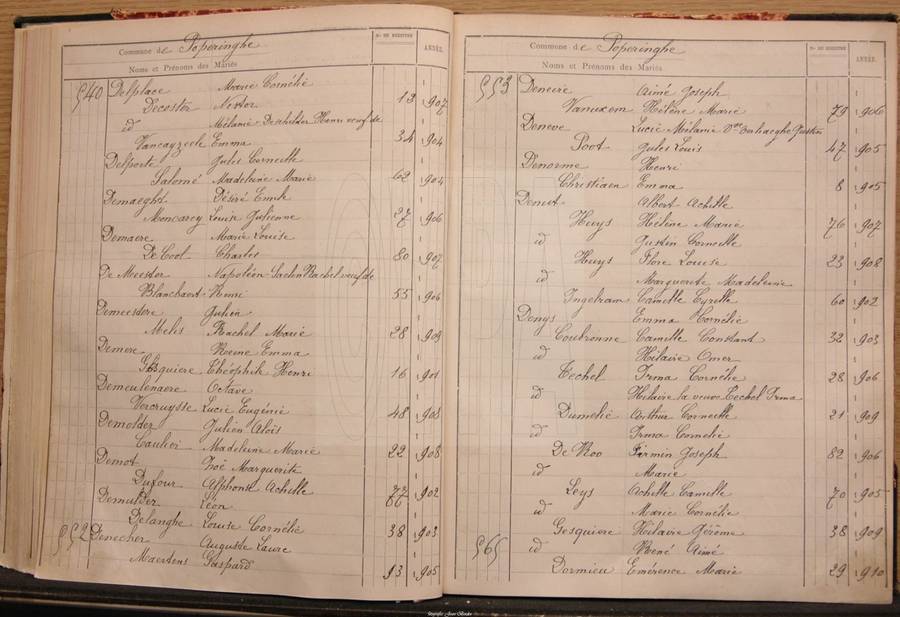 Commune de Poperinghe
Noms et Prénoms des Mariés
No DU REGISTRE
ANNÉE.
540 Delplace Marie Cornélie
Decoster Nestor 13 1907
id Mélanie Deschilder Henri veuf de
Vancayzeele Emma 34 1904
Delporte Jules Corneille
Salomé Madeleine Marie 62 1904
Demaeght Désiré Emile
Moncarey Louise Julienne 27 1906
Demaere Marie Louise
De Cool Charles 80 1907
De Meester Napoléon Rachel veuf de
Blanchaert Henri 55 1906
Demeestere Julien
Melis Rachel Marie 28 1909
Demere Reine Emma
Gesquiere Théophile Henri 16 1901
Demeulenaere Octave
Vercruysse Lucie Eugénie 48 1908
Demolder Julien Aloïs
Caulier Madeleine Marie 22 1908
Demot Zoé Marguerite
Dufour Alphonse Achille 77 1902
Demulder Léon
Delanghe Louise Cornélie 38 1903
552 Denecker Auguste Laure
Maertens Gaspard 93 1905
Commune de Poperinghe
Noms et Prénoms des Mariés
No DU REGISTRE
ANNÉE.
553 Deneire Aimé Joseph
Vanuxem Hélène Marie 79 1906
Deneve Lucie Mélanie
Poot Jules Louis 47 1905
Denorme Henri
Christiaen Emma 8 1905
Denut Albert Achille
Huys Hélène Marie 76 1907
id Justin Corneille
Huys Flore Louise 23 1908
id Marguerite Madeleine
Ingelram Camille Cyrille 60 1902
Denys Emma Cornélie
Coutrenne Camille Constant 32 1903
id Hilaire Omer
Techel Irma Cornélie 28 1906
id Hilaire la veuve Techel Irma
Dumelie Arthur Corneille 21 1909
id Irma Cornélie
De Roo Firmin Joseph 82 1906
id Marie
Leys Achille Camille 70 1905
id Marie Cornélie
Gesquiere Hilaire Gérôme 38 1909
565 id René Aimé
Dormieu Emérence Marie 29 1910